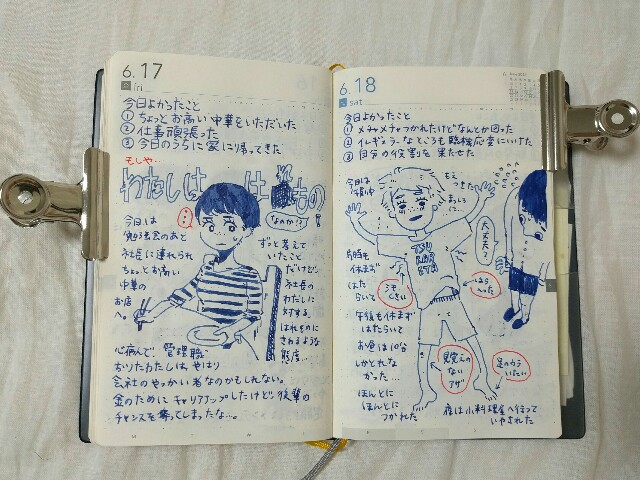 6.17
fri
今日よかったこと
① ちょっとお高い中華をいただいた
② 仕事頑張った
③ 今日のうちに家に帰ってきた
もしや…
わたしは
は
れもの
なのか!?
今日は
勉強会のあと
社長に連れられ
ちょっとお高い
中華の
お店
へ。
ずっと考えて
いたこと
だけど…
社長の
わたしに
対する
はれものに
さわるような
態度…
心病んで、管理職
おりたわたしは、やはり
会社のやっかい者なのかもしれない。
金のためにキャリアアップしたけど、後輩の
チャンスを奪ってしまったな…。
6.18
sat
今日よかったこと
① メチャメチャつかれたけどなんとか回った
② イレギュラーなところも臨機応変にいけた
③ 自分の役割を果たせた
今日は
もえ
つきた…
まっしろ
に…
TSU
KAR
ETA
大丈夫?
休まず
はた
らいて
はらへった
午後も休まず
はたらいて
お昼は10分
しかとれな
かった…
見覚えの
ない
アザ
足のウラ
いたい
ほんとに
ほんとに
つかれた
夜は小料理屋へ行って
いやされた